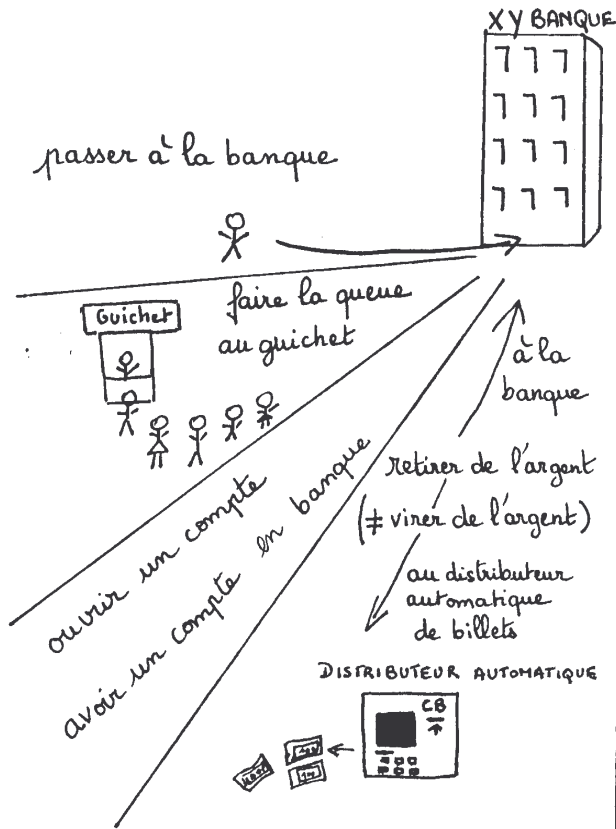 XY BANQUE
passer à la banque
faire la queue
au guichet
Guichet
ouvrir un compte
avoir un compte en banque
à la
banque
retirer de l'argent
(≠ virer de l'argent)
au distributeur
automatique
de billets
DISTRIBUTEUR AUTOMATIQUE
CB